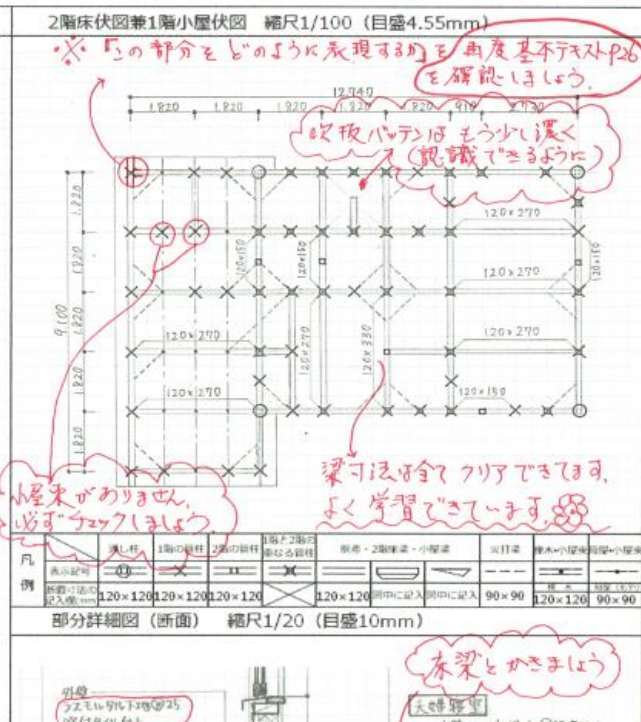 2階床伏図兼1階小屋伏図 縮尺1/100 (目盛4.55mm)
※「この部分をどのように表現するか」を再度基本テキストP26
を確認しましょう。
12.740
1.820 1.820 1.820 1.820 1.820 910 2.730
吹抜バッテンは もう少し濃く
(認識できるように)
1.820
120×270
1.820
120×150
120×150
120×150
120×270
9.100
1.820
120×270
120×270
120×330
120×270
1.820
120×270
120×150
1.820
小屋束がありません。
必ずチェックしましょう
梁寸法は全て クリアできてます。
よく学習できています。
凡例
通し柱 1階の管柱 2階の管柱 1階と2階の重なる管柱 胴差・2階床梁・小屋梁 火打梁 棟木・小屋束 母屋・小屋束
表示記号
断面寸法の記入欄mm 120×120 120×120 120×120 120×120 図中に記入 図中に記入 90×90 棟木 120×120 90×90
部分詳細図(断面) 縮尺1/20 (目盛10mm)
床梁とかきましょう
外壁
夫婦寝室